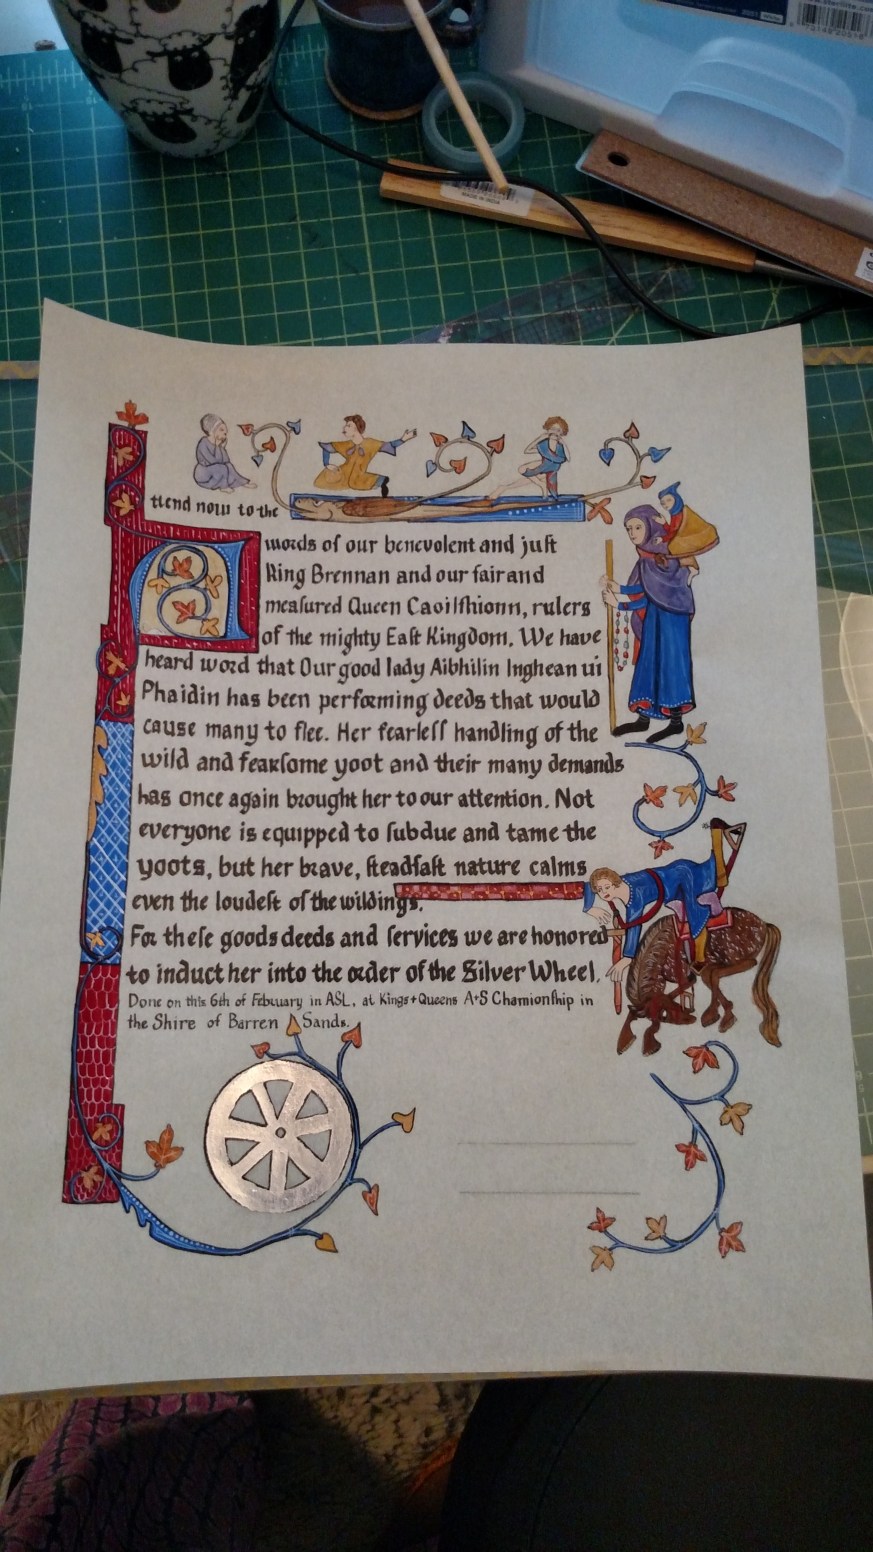 Attend now to the
words of our benevolent and juſt
King Brennan and our fair and
meaſured Queen Caoilfhionn, rulers
of the mighty Eaſt Kingdom. We have
heard word that Our good lady Aibhilin Inghean ui
Phaidin has been performing deeds that would
cause many to flee. Her fearleſſ handling of the
wild and fearſome yoot and their many demands
has once again brought her to our attention. Not
everyone is equipped to ſubdue and tame the
yoots, but her brave, ſteadfaſt nature calms
even the loudeſt of the wildings.
For theſe goods deeds and ſervices we are honored
to induct her into the order of the Silver Wheel.
Done on this 6th of February in ASL, at Kings+Queens A+S Chamionſhip in
the Shire of Barren Sands.
MADE IN INDIA